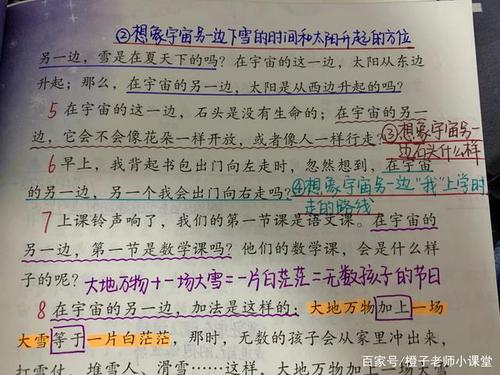 ②想象宇宙另一边下雪的时间和太阳升起的方位
另一边，雪是在夏天下的吗？在宇宙的这一边，太阳从东边
升起；那么，在宇宙的另一边，太阳是从西边升起的吗？
5 在宇宙的这一边，石头是没有生命的；在宇宙的另一
边，它会不会像花朵一样开放，或者像人一样行走？③想象宇宙另一
边石头什么样
6 早上，我背起书包出门向左走时，忽然想到，在宇宙
的另一边，另一个我会出门向右走吗？④想象宇宙另一边“我”上学时
走的路线
7 上课铃声响了，我们的第一节课是语文课。在宇宙的
另一边，第一节是数学课吗？他们的数学课，会是什么样
子的呢？大地万物十一场大雪=一片白茫茫=无数孩子的节日
8 在宇宙的另一边，加法是这样的：大地万物加上一场
大雪等于一片白茫茫，那时，无数的孩子会从家里冲出来，
打雪仗、堆雪人、滑雪……这样，大地万物加上一场大雪
百家号/橙子老师小课堂